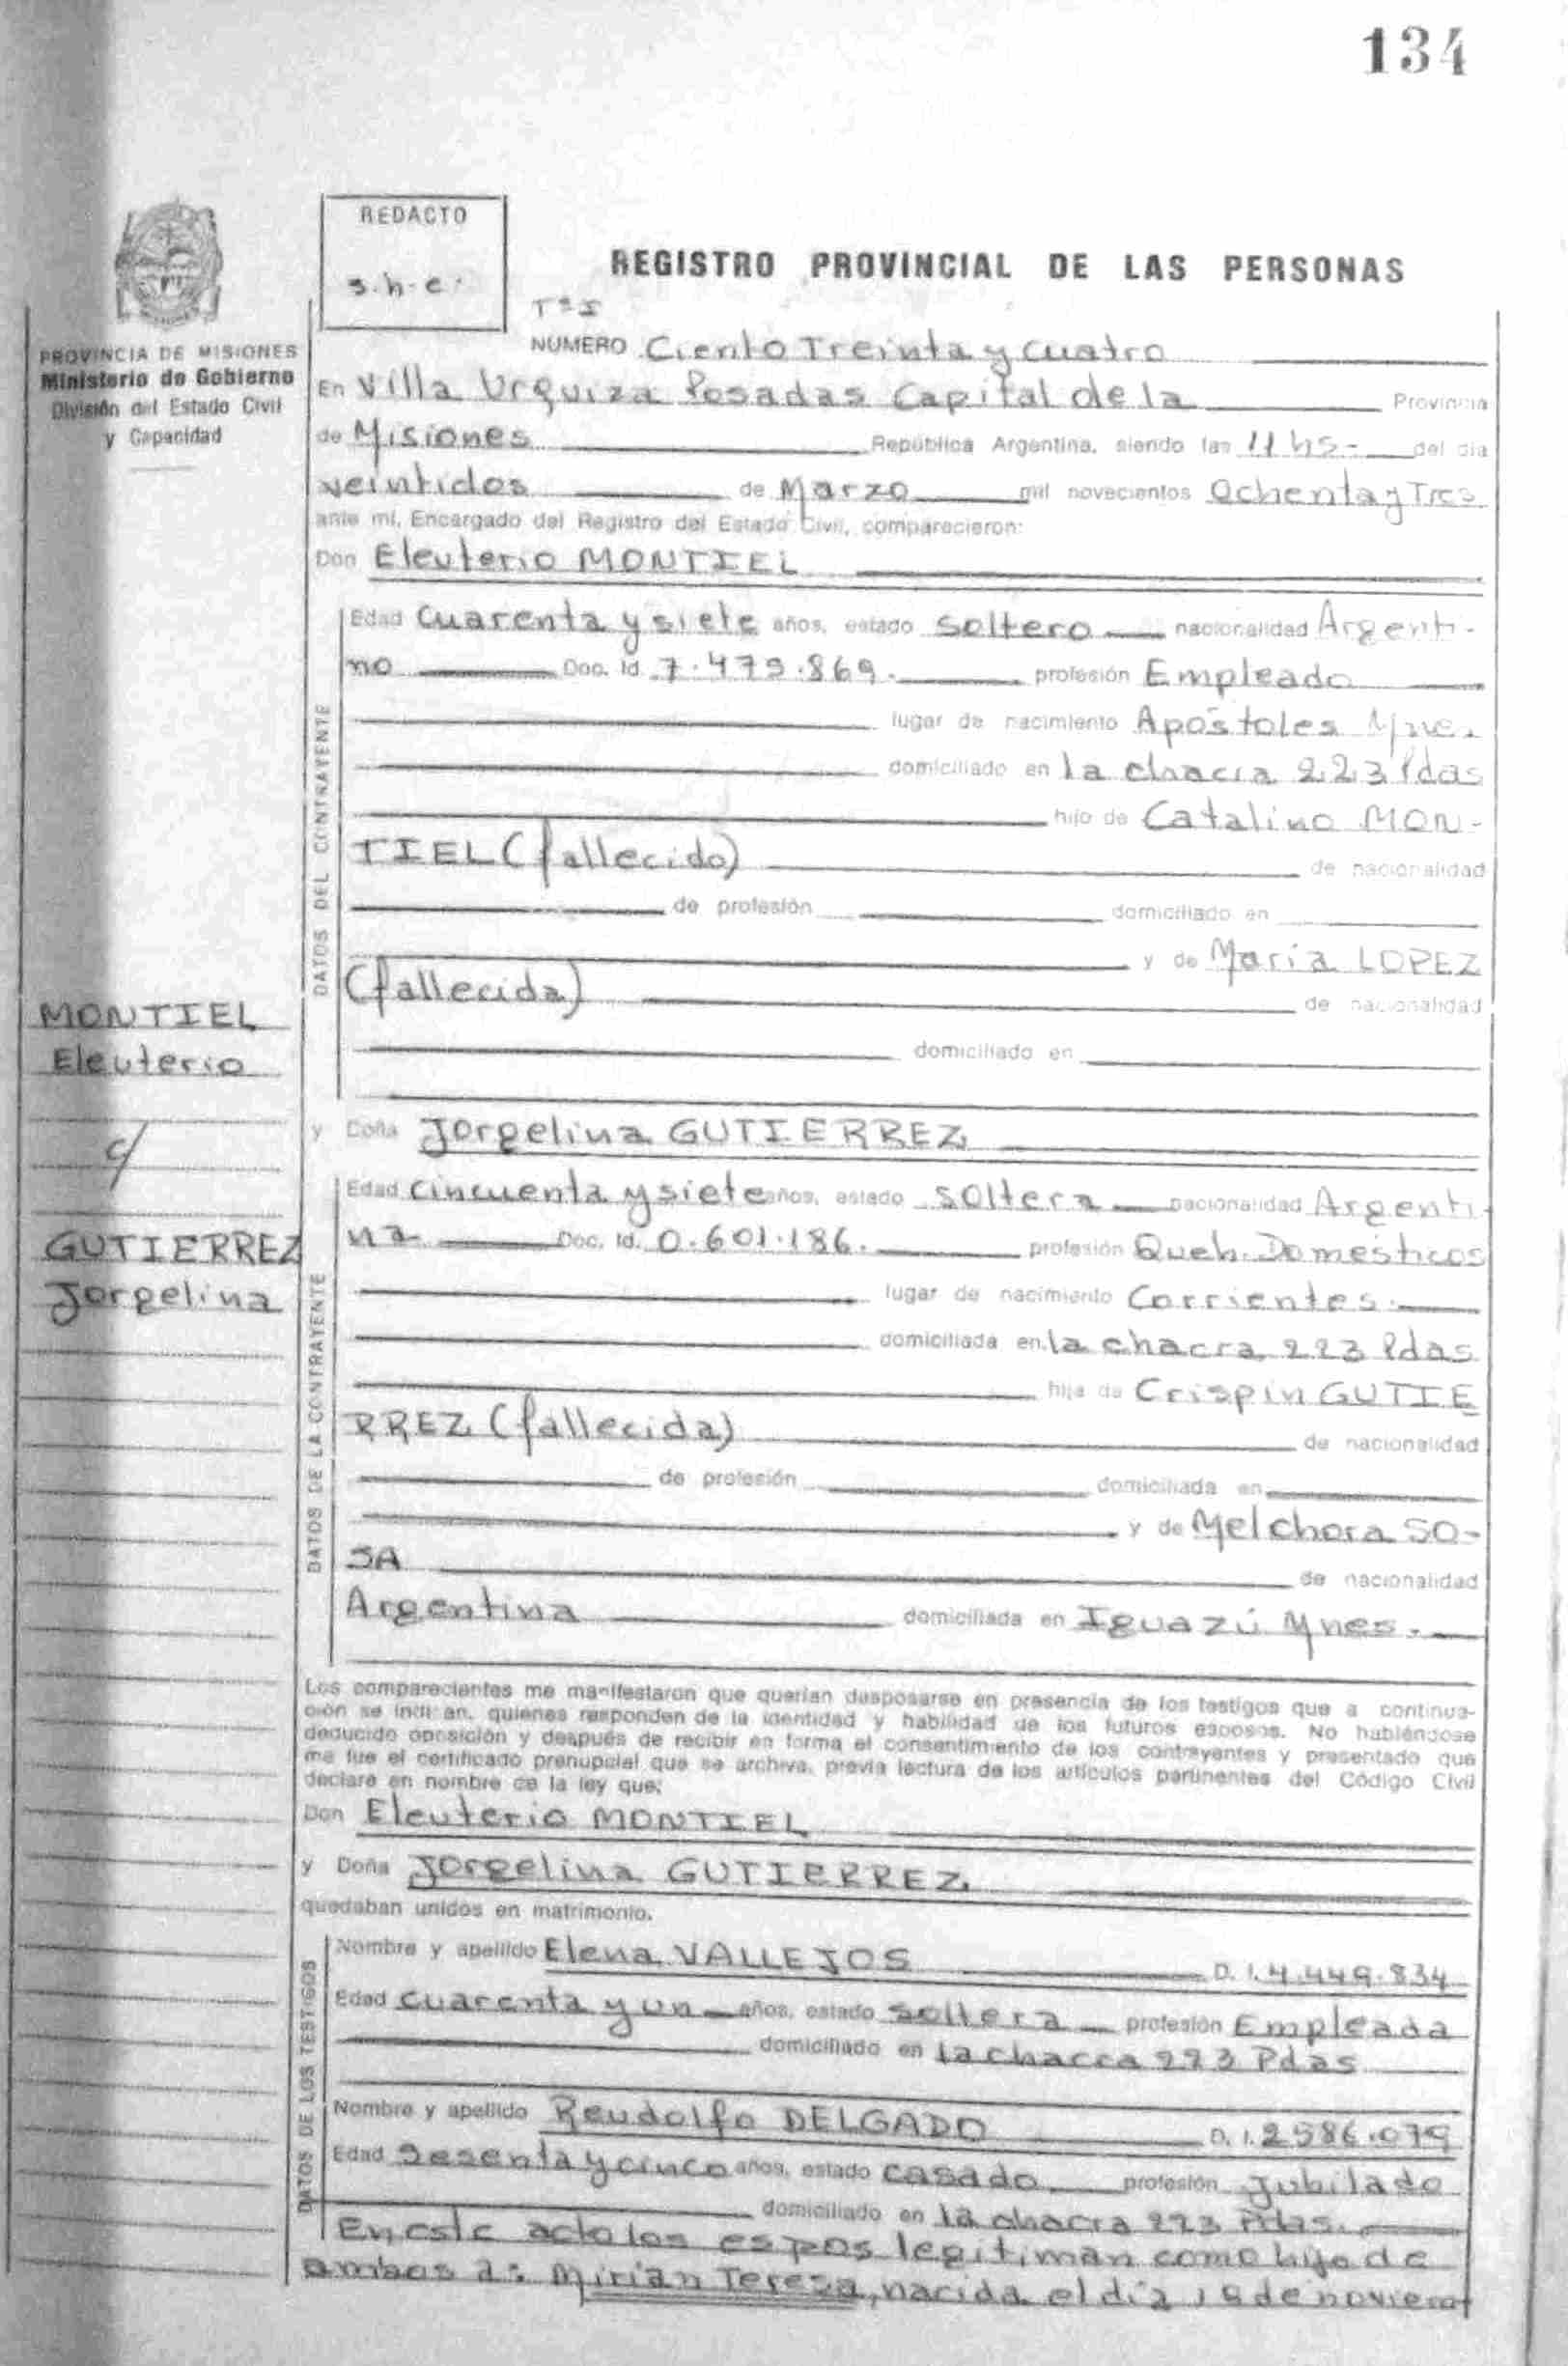 134
REDACTO
s.h.e.
REGISTRO PROVINCIAL DE LAS PERSONAS
Tº I
NUMERO Ciento Treinta y cuatro
PROVINCIA DE MISIONES
Ministerio de Gobierno
División del Estado Civil
y Capacidad
En Villa Urquiza Posadas Capital de la Provincia
de Misiones República Argentina, siendo las 11 hs- del día
veintidos de Marzo mil novecientos Ochenta y Tres
ante mi, Encargado del Registro del Estado Civil, comparecieron:
Don Eleuterio MONTIEL
DATOS DEL CONTRAYENTE
Edad Cuarenta y siete años, estado soltero nacionalidad Argenti-
no Doc. Id. 7.479.869. profesión Empleado
lugar de nacimiento Apóstoles Mnes.
domiciliado en la chacra 223 Pdas
hijo de Catalino MON-
TIEL (fallecido) de nacionalidad
de profesión domiciliado en
y de María LOPEZ
(fallecida) de nacionalidad
domiciliado en
MONTIEL
Eleuterio
c/
GUTIERREZ
Jorgelina
y Doña Jorgelina GUTIERREZ
DATOS DE LA CONTRAYENTE
Edad Cincuenta y siete años, estado soltera nacionalidad Argenti-
na Doc. Id. 0.601.186. profesión Queh. Domésticos
lugar de nacimiento Corrientes.
domiciliada en la chacra 223 Pdas
hija de Crispin GUTIE
RREZ (fallecida) de nacionalidad
de profesión domiciliada en
y de Melchora SO-
SA de nacionalidad
Argentina domiciliada en Iguazú Mnes.
Los comparecientes me manifestaron que querían desposarse en presencia de los testigos que a continua-
ción se indican, quienes responden de la identidad y habilidad de los futuros esposos. No habiéndose
deducido oposición y después de recibir en forma el consentimiento de los contrayentes y presentado que
me fue el certificado prenupcial que se archiva, previa lectura de los artículos pertinentes del Código Civil
declaré en nombre de la ley que:
Don Eleuterio MONTIEL
y Doña Jorgelina GUTIERREZ
quedaban unidos en matrimonio.
DATOS DE LOS TESTIGOS
Nombre y apellido Elena VALLEJOS D. I. 4.449.834
Edad cuarenta y un años, estado soltera profesión Empleada
domiciliado en la chacra 223 Pdas
Nombre y apellido Reudolfo DELGADO D. I. 2586.079
Edad Sesenta y cinco años, estado casado profesión Jubilado
domiciliado en la chacra 223 Pdas.
En este acto los espos legitiman como hijo de
ambos a: Mirian Teresa, nacida el día 18 de noviem